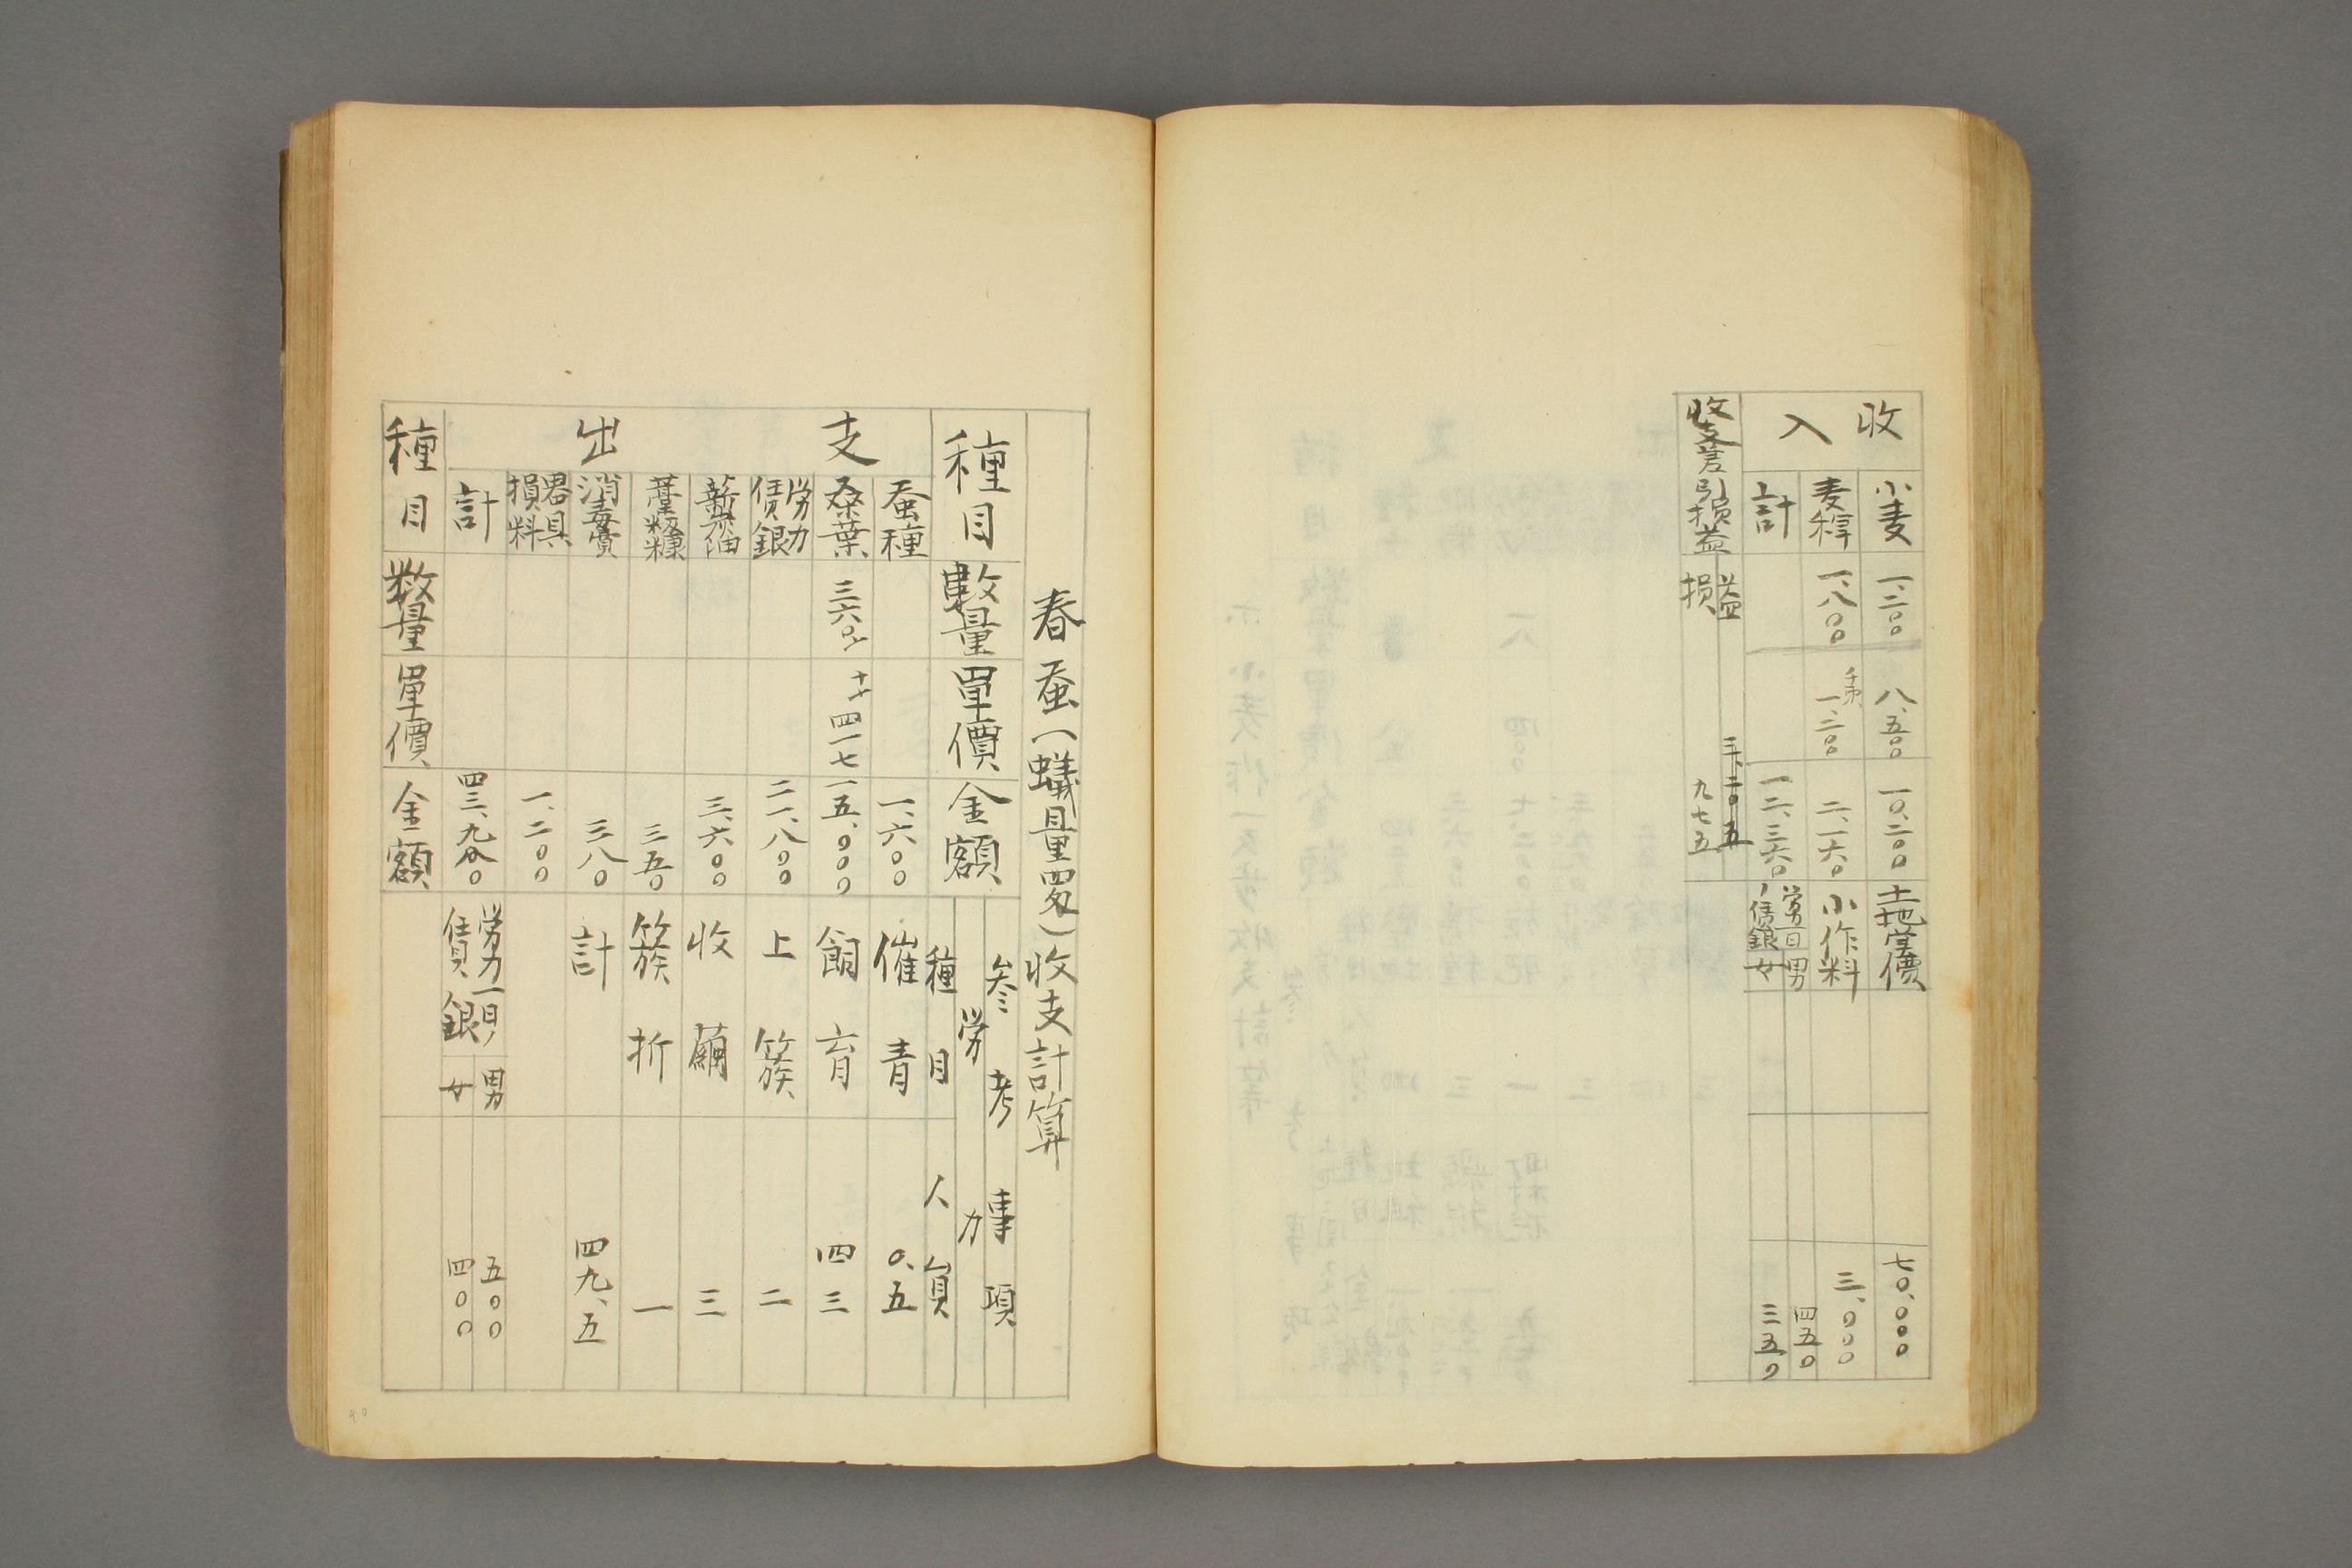 收入
小麦 一、二〇〇 八、五〇〇 一〇、二〇〇 土地賣價 七〇、〇〇〇
麦稈 一、八〇〇 一、二〇〇 二、一六〇 小作料 三、〇〇〇
計 一二、三六〇 労力一日ノ賃銀 男 四五〇
女 三五〇
收支差引損益 益
損 九七五
春蚕(蟻量四匁)收支計算
種目 數量 單價 金額 参考事項
労力
種目 人員
支出
蚕種 一、六〇〇 催青 〇、五
桑葉 三六〇〆 十〆四一七 一五、〇〇〇 飼育 四三
労力賃銀 二一、八〇〇 上簇 二
薪炭油 三、六〇〇 收繭 三
三五〇 簇折 一
消毒費 三八〇 計 四九、五
器具損料 一、二〇〇
計 四三、九〇 労力一日ノ賃銀 男 五〇〇
女 四〇〇
種目 数量 單價 金額